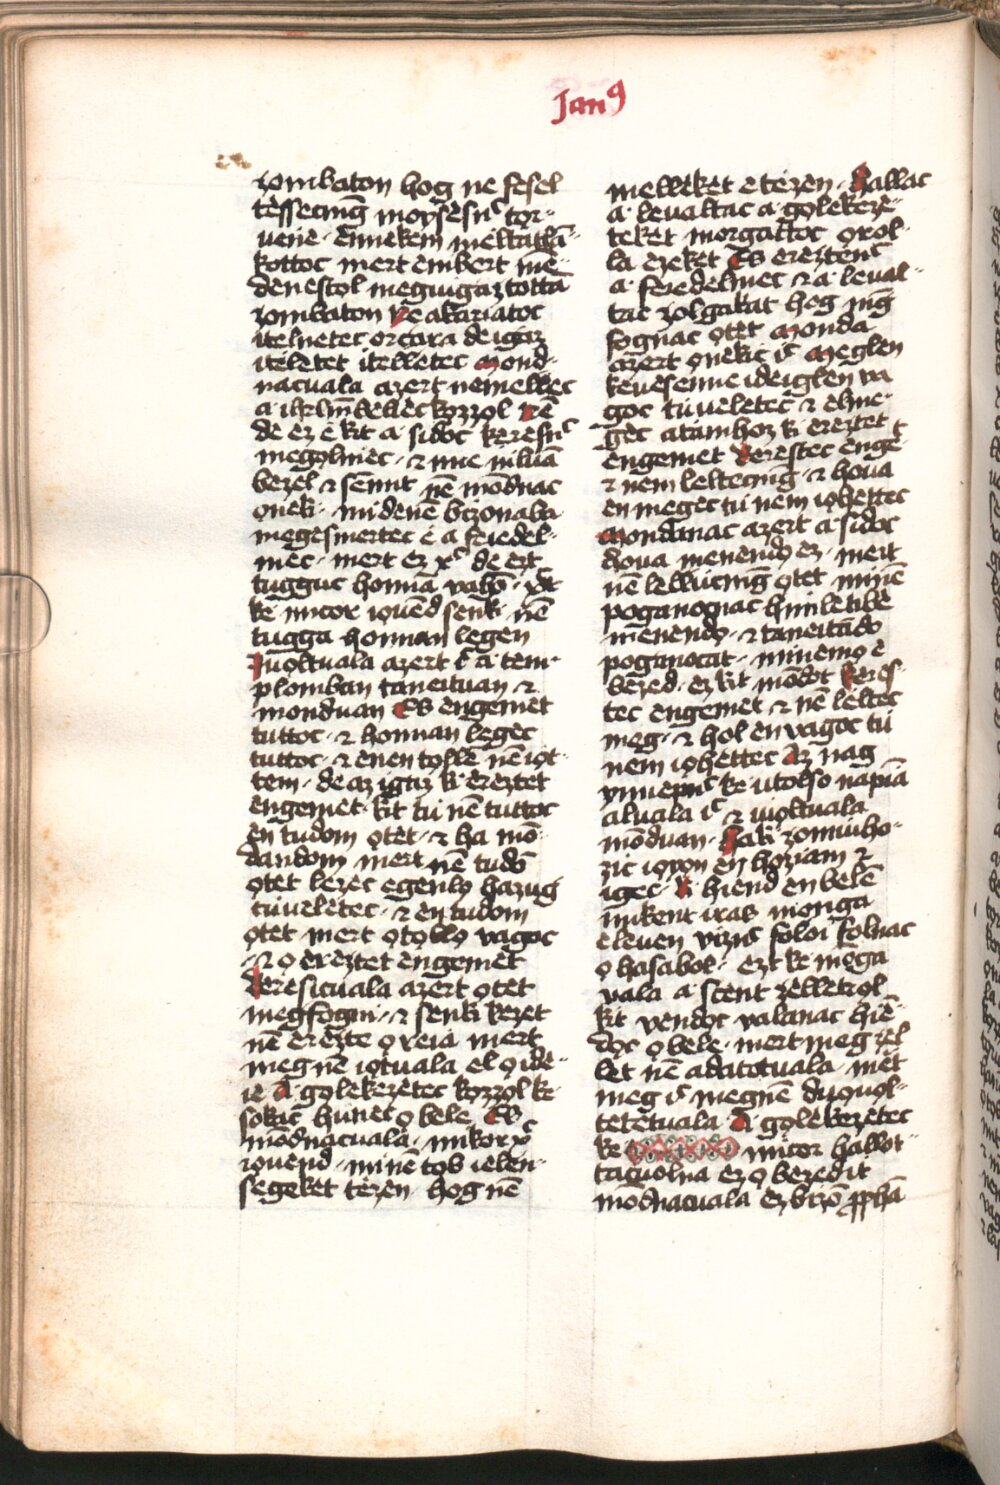 Janꝰ
zombaton hog ne fesel
tėssecnig̅ moysėsnc̅ tor-
uėńe · Ennekem mėltatla̅-
kottoc mert embert me̅-
denestol meguigaztotta̅
zombaton Ne akariatoc
itelnetec orcara de igaz
itėletėt itelletec Mond-
nacuala azert nemellec
a ihrlm̅beliec kozzol ne̅
de ez è kit a sidoc keresnc̅
megolniec · ⁊ ime niluā
bezel ⁊ sėmit ne̅ mōdnac
onėki · midene̅ bizonaba
megesmertec è a feiedel-
mėc · mert ez xc̅ de ezt
tugguc honna̅ vaḷo̅ · xc̅
kė micor iouėd senki · ne̅
tugga honnan legen
Iuoltuala azert ic̅ a tem-
plomban taneituan ⁊
monduan Es engemet
tuttoc · ⁊ honnan legėc
tuttoc · ⁊ enen tollē nē iot-
tem · de az igaz ki ereztėt
engemėt · kit tu̇ ne̅ tuttoc
en tudom otet · ⁊ ha mo̅-
dandom mert nē tudō
otet lezec egenlo hazug
tu̇ueletec · ⁊ en tudom
otet mert otollo vagoc
· ⁊ o ereztėt engemet
Keresicuala azert otėt
megfogni · ⁊ senki kezėt
nē ėrėztė o reia mert
meg nē iotuala el o idė-
ie A golekezėtec kozzol kė
sokac̅ hunėc o bele Es
mōdnacuala · mikor xc̅
iouend · mine̅ tob ielen-
segeket tezen · hog ne̅
mellėkėt e tėzen · Hallac
a leualtac a golekezė-
teket morgattoc orol-
la ezeket Es ereztenc̅
a feiedelmec ⁊ a leual-
tac zolgakat hog mg̅
fognac otet Monda
azert onekic ic̅ Meglen
keuesenne ideiglen va
goc tu̇ueletec ⁊ elme-
gec atamhoz ki ereztėt
engemet Kerestec enge̅t
⁊ nem leltecnig̅ ⁊ houa
en megec tu̇ nem iohettec
Mondanac azert a sidoc
houa menendo ez · mert
ne̅ lelliucnig̅ otet mine̅
poganognac himletibe
menendo · ⁊ taneitādo
poganocat · minemo è
bezed · ez kit mōdot Keres-
tec engemet · ⁊ nē leltec
meg · ⁊ hol en vagoc tu̇
nem iohettec Az nag
ynnepnc̅ kė utolso napiā
aluala ic̅ ⁊ uioltuala
mōduan · Haki zomiuho-
zic iouon en hoziam ⁊
igec · Ki hiend en bele̅
mikent iras monga
eleuen viznc̅ foloi folnac
o hasabol · ezt ke mōga
vala a scent zelletrol
kit vendoc valanac hie̅-
doc o bele · mert meg zel
let nē adatotuala · mėt
meg ic̅ megnē duoyol-
tetetuala A golekezetec
ke micor hallot-
tacuolna ez o bezedit
modnacuala ez bizō ꝓphā